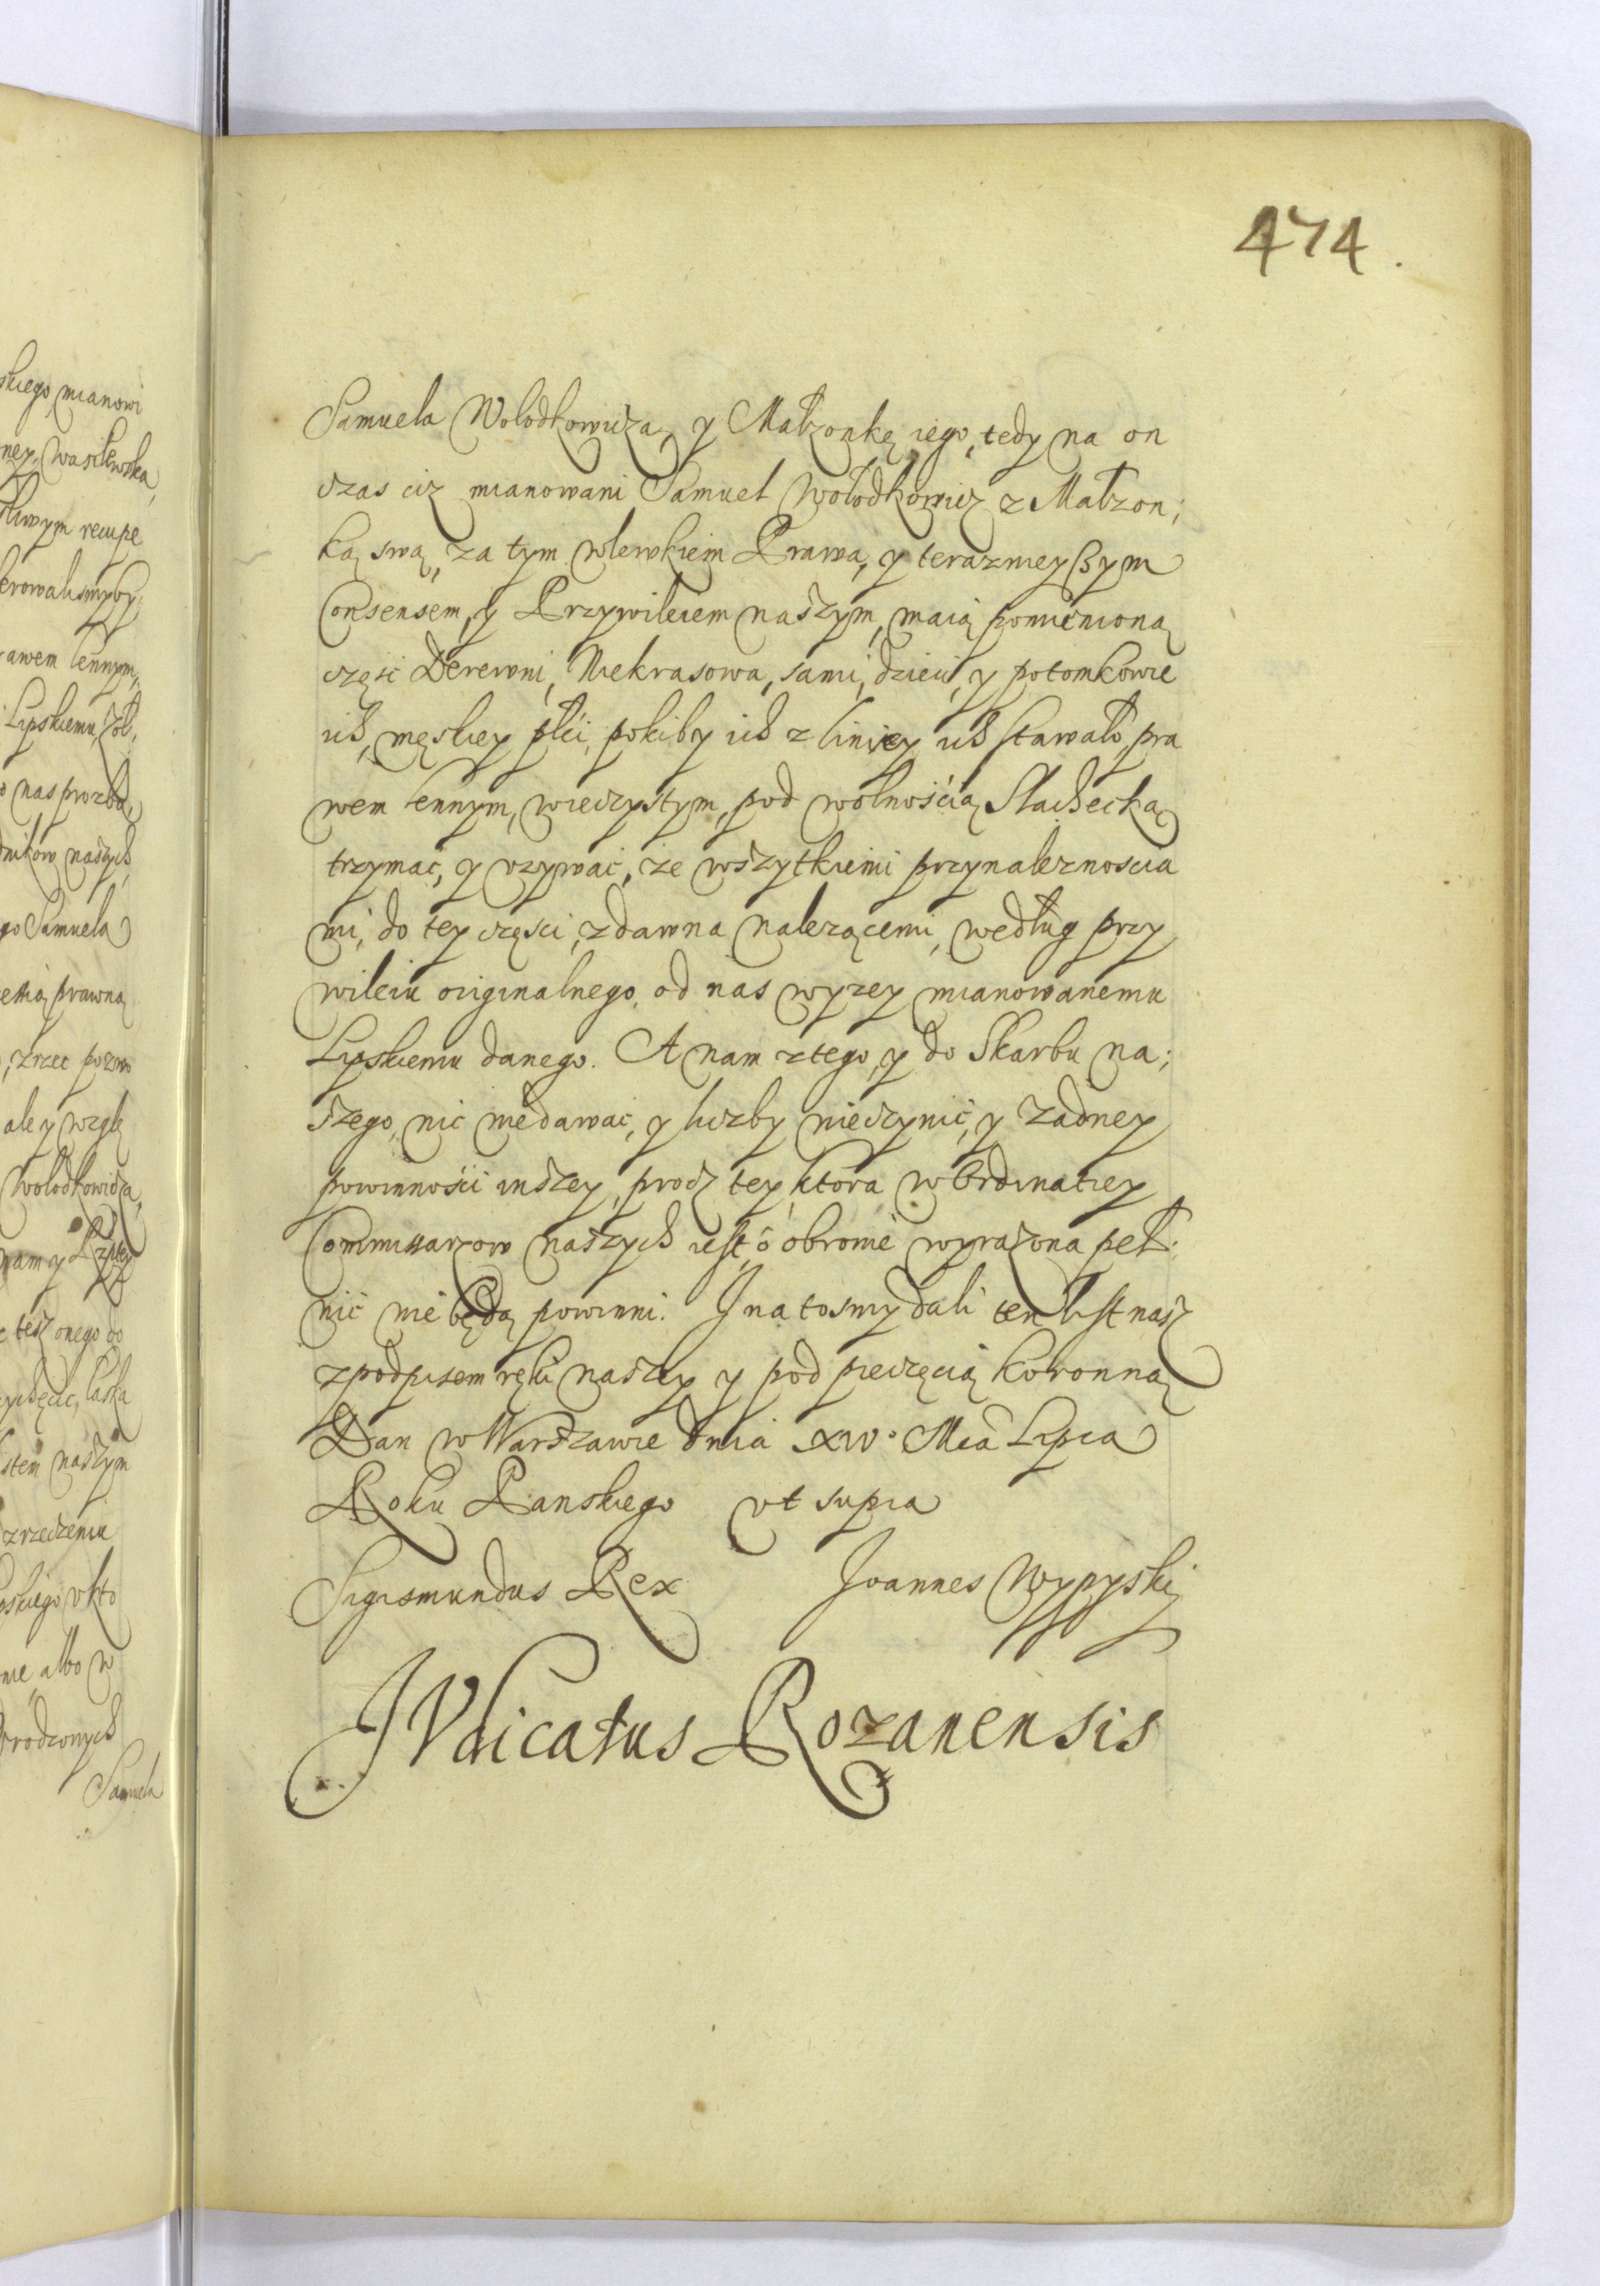 474
Samuela Wolodkowicza, y Małzonkę iego, tedy na on
czas ciz mianowani Samuel Wołodkowicz z Małzon;
ką swą, za tym wlewkiem Prawa, y teraznieyßym
Consensem, y Przywileiem naszym, maią pomienioną
część Derewni, Niekrasowa, sami, dzieci, y potomkowie
ich, męskiey płći, pokiby ich z liniey ich stawało, pra
wem lennym, wieczystym, pod wolnością Slachecką
trzymać, y vzywać, ze wszytkiemi przynaleznoscia
mi, do tey częsci, zdawna nalezącemi, według przy
wileiu originalnego, od nas wyzey mianowanemu
Lipskiemu danego. A nam ztego, y do Skarbu na;
szego, nic niedawać, y liczby nieczynić, y Zadney
powinności inszey, procz tey, ktora w Ordinatiey
Commissarzow naszych iest ó obronie wyrazona peł:
nić nie będą powinni. I na tosmy dali ten list nasz
zpodpisem ręki naszey y pod pieczęcią koronną
Dan w Warszawie dnia XV. Mca Lipca
Roku Panskiego vt supra
Sigismundus Rex Joannes Wypyski
IVdicatus Rozanensis
skiego, mianowi
ney, wasilewska,
recupe
erowalismyby,
awem lennym,
Lipskiemu,
nas prozba,
naszych,
go Samuela
prawną
zrzec
ale y wzglę
Wolodkowicza,
nam y Rzptey
tesz onego do
łaska
stem naszym
zrzeczeniu
vkto
nie albo w
rodzonych
Samuela